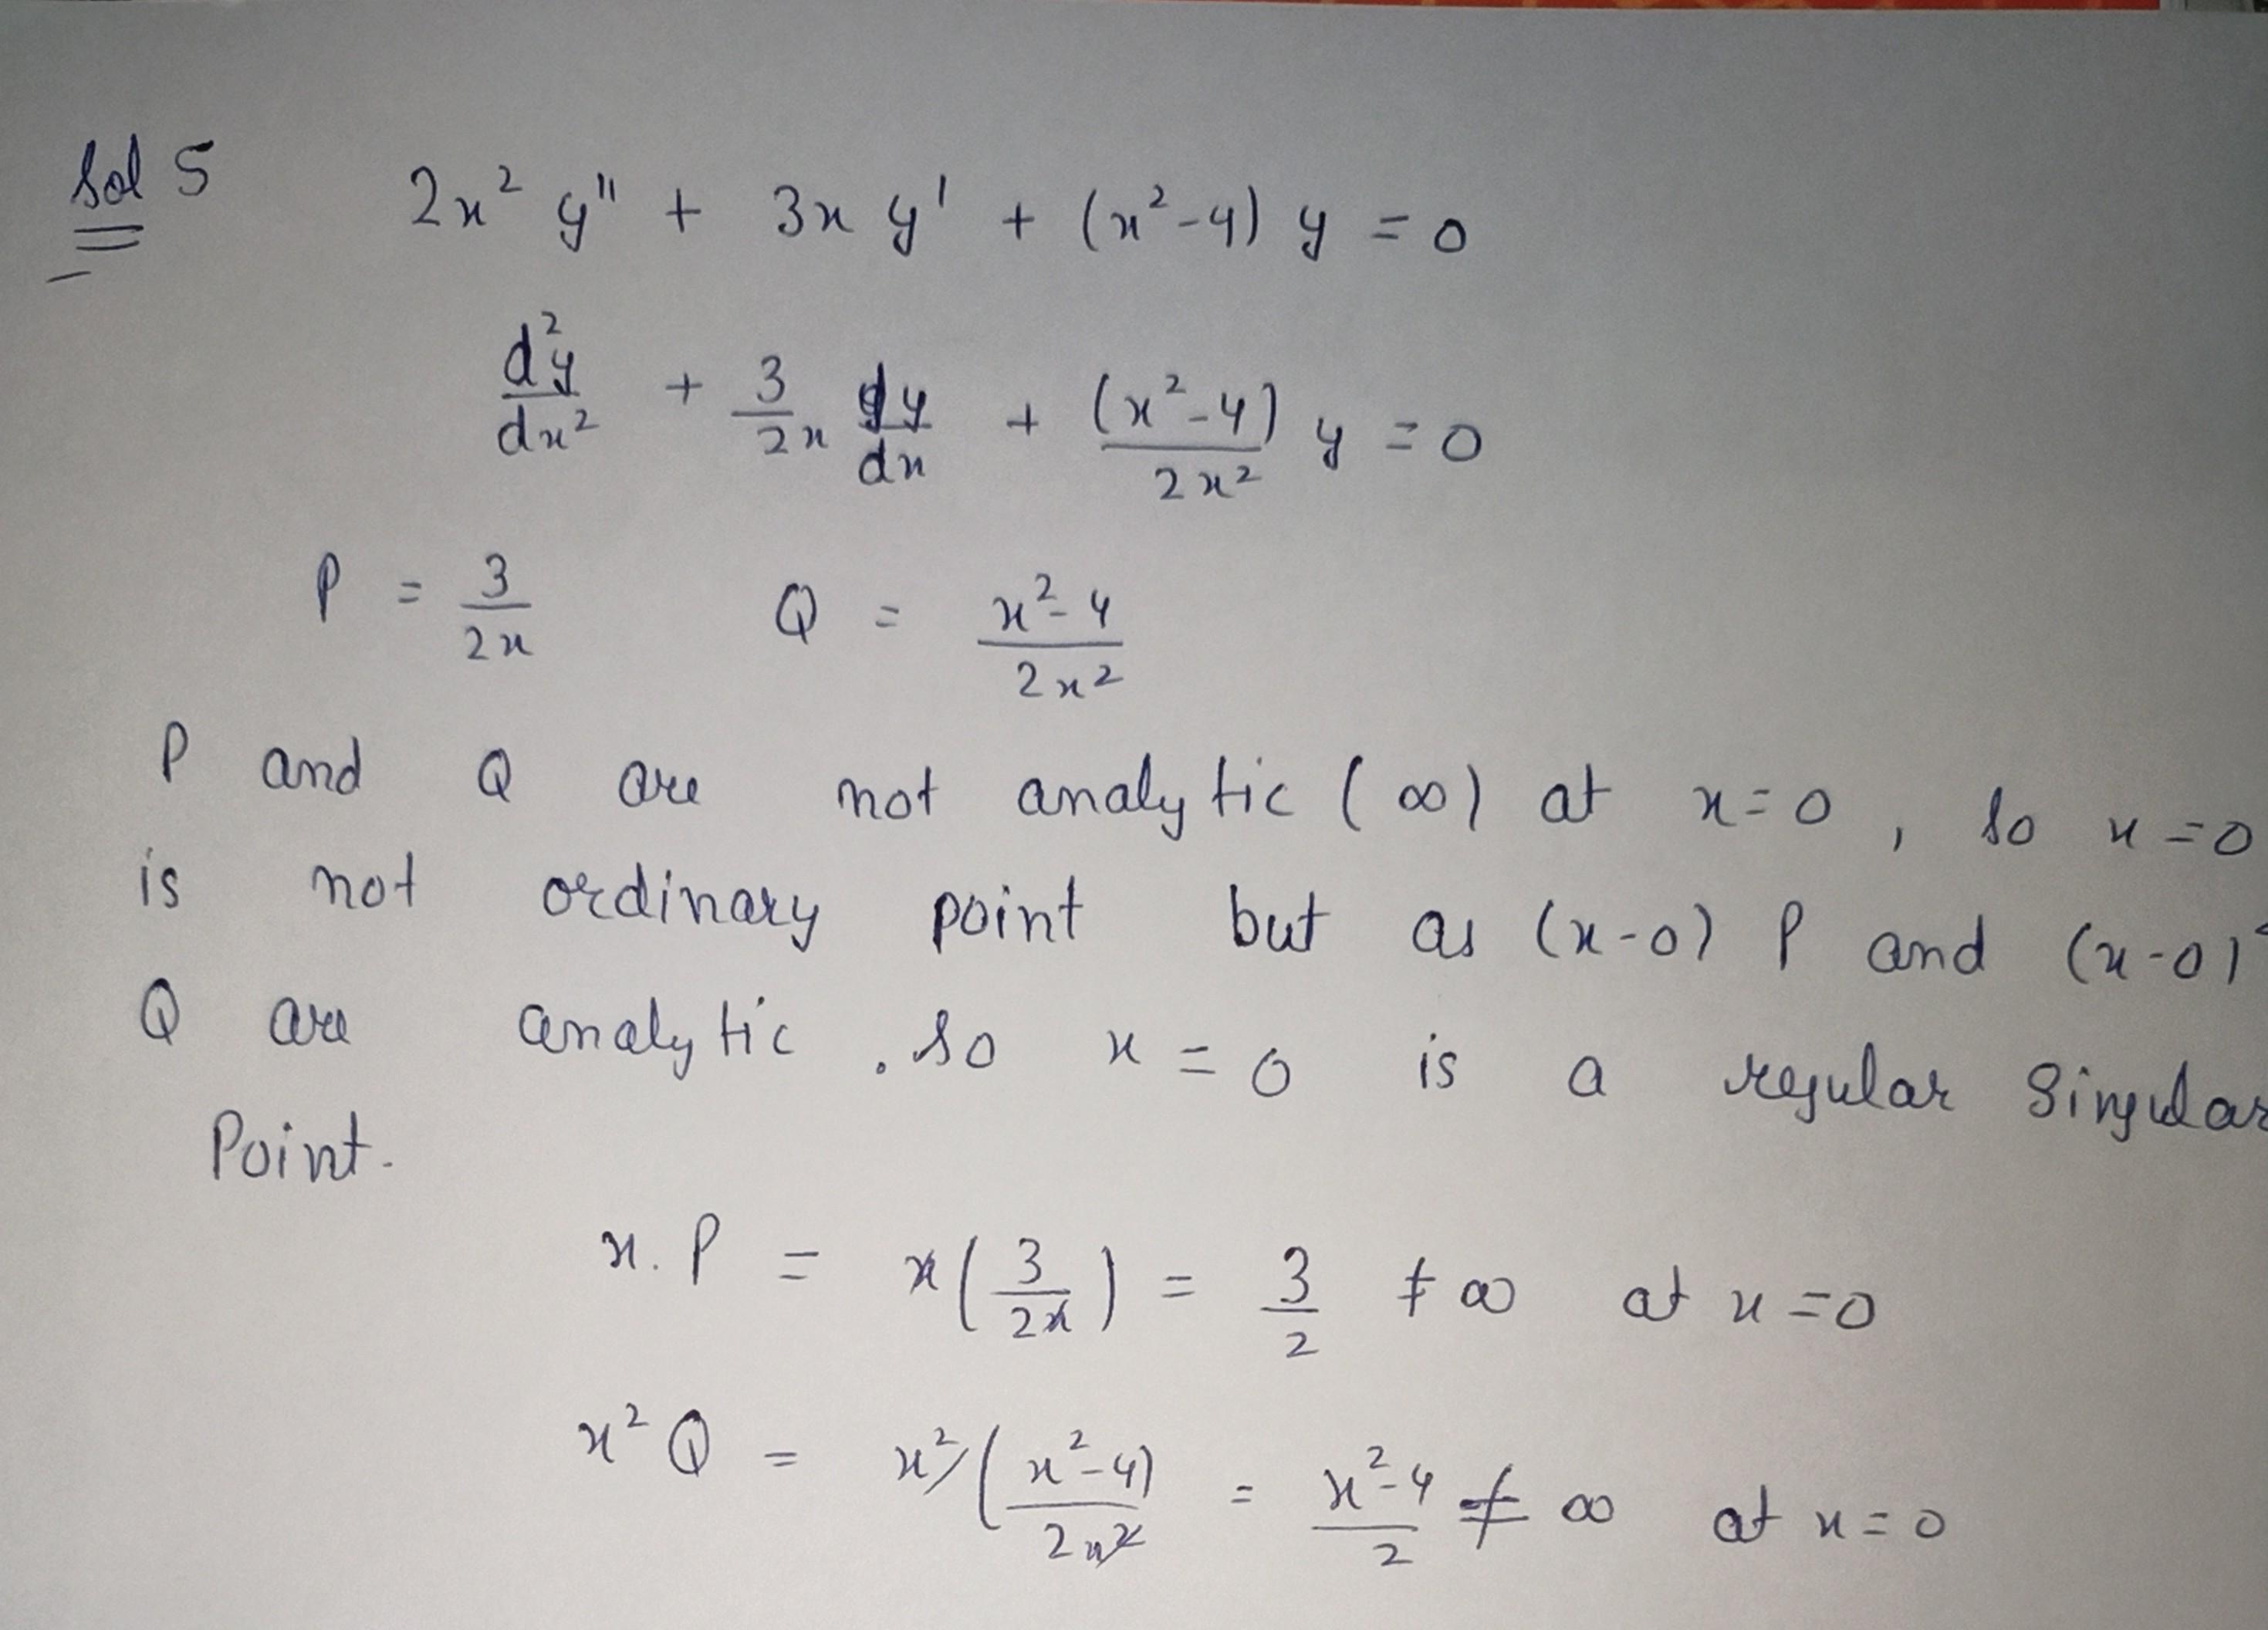 Sol 5 2x² y" + 3x y' + (x²-4) y = 0
d²y/dx² + 3/2x dy/dx + (x²-4)/2x² y = 0
P = 3/2x Q = x²-4/2x²
P and Q are not analytic (∞) at x=0, so x=0
is not ordinary point but as (x-0) P and (x-0)²
Q are analytic. so x = 0 is a regular Singular
Point.
x. P = x(3/2x) = 3/2 ≠ ∞ at x=0
x² Q = x²(x²-4)/2x² = x²-4/2 ≠ ∞ at x=0